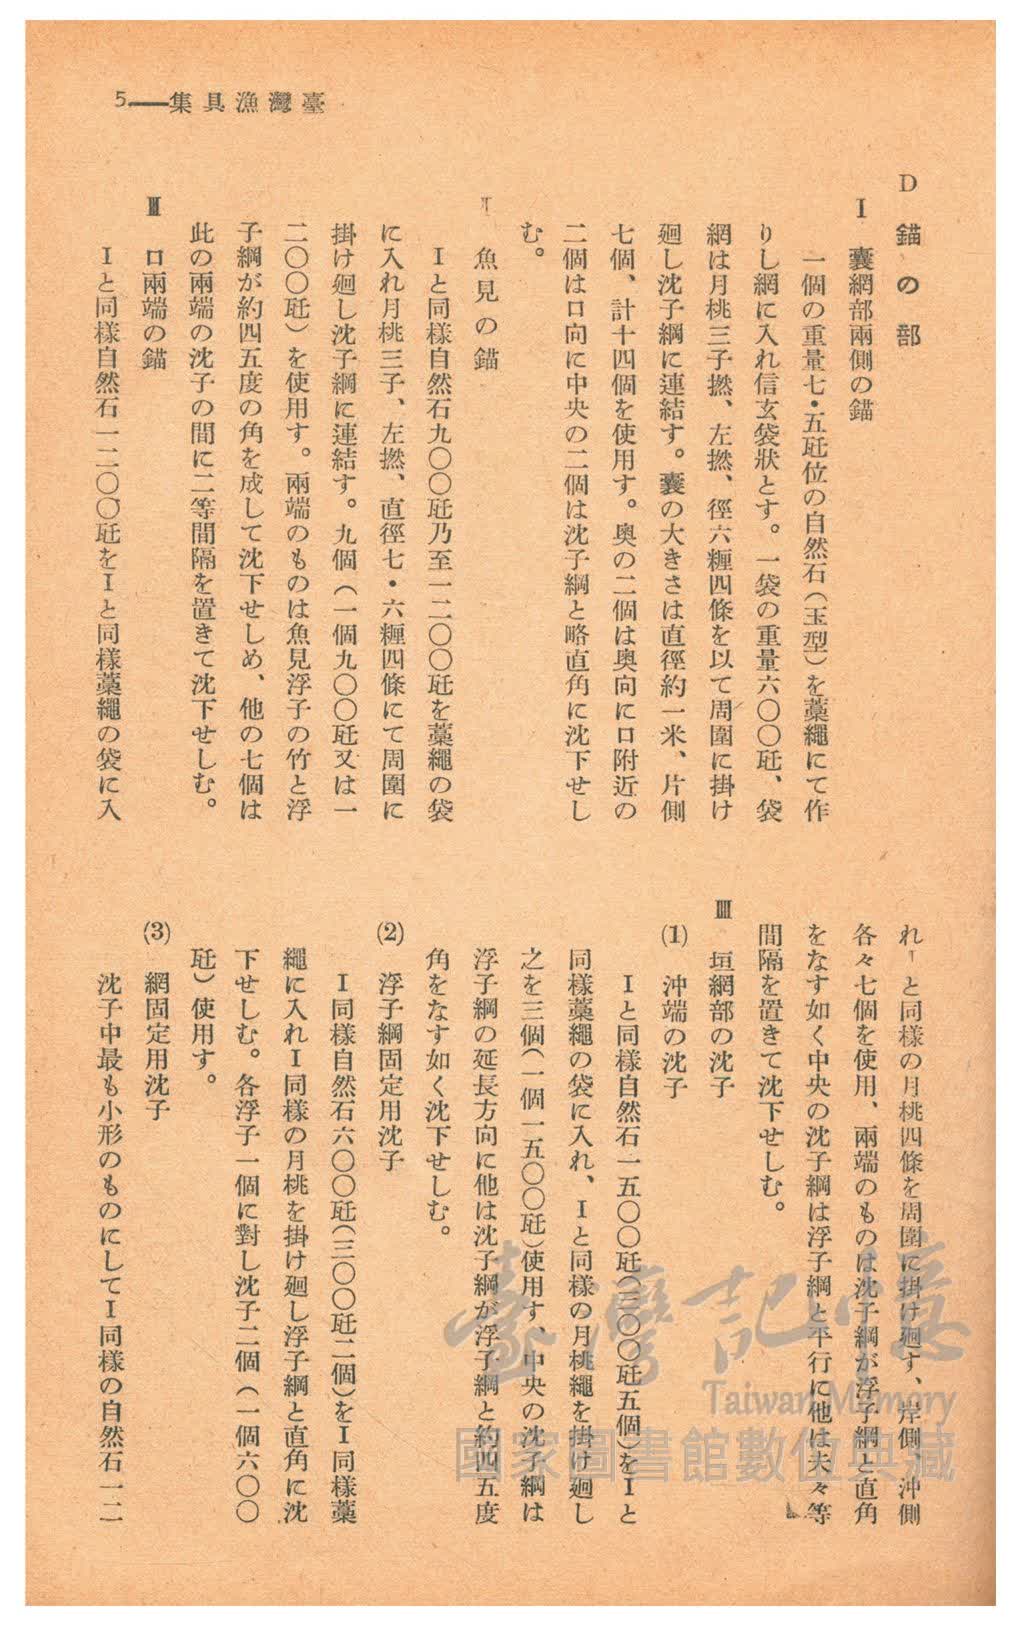 5——集具漁灣臺
D 錨の部
Ⅰ 囊網部兩側の錨
一個の重量七・五瓩位の自然石（玉型）を藁繩にて作
りし網に入れ信玄袋狀とす。一袋の重量六〇〇瓩、袋
網は月桃三子撚、左撚、徑六糎四條を以て周圍に掛け
廻し沈子綱に連結す。囊の大きさは直徑約一米、片側
七個、計十四個を使用す。奥の二個は奥向に口附近の
二個は口向に中央の二個は沈子綱と略直角に沈下せし
む。
Ⅱ 魚見の錨
Ⅰと同樣自然石九〇〇瓩乃至一二〇〇瓩を藁繩の袋
に入れ月桃三子、左撚、直徑七・六糎四條にて周圍に
掛け廻し沈子綱に連結す。九個（一個九〇〇瓩又は一
二〇〇瓩）を使用す。兩端のものは魚見浮子の竹と浮
子綱が約四五度の角を成して沈下せしめ、他の七個は
此の兩端の沈子の間に二等間隔を置きて沈下せしむ。
Ⅲ 口兩端の錨
Ⅰと同樣自然石一二〇〇瓩をⅠと同樣藁繩の袋に入
れⅠと同樣の月桃四條を周圍に掛け廻す、岸側、沖側
各々七個を使用、兩端のものは沈子綱が浮子綱と直角
をなす如く中央の沈子綱は浮子綱と平行に他は夫々等
間隔を置きて沈下せしむ。
Ⅲ 垣網部の沈子
(1) 沖端の沈子
Ⅰと同樣自然石一五〇〇瓩（三〇〇瓩五個）をⅠと
同樣藁繩の袋に入れ、Ⅰと同樣の月桃繩を掛け廻し
之を三個（一個一五〇〇瓩）使用す、中央の沈子綱は
浮子綱の延長方向に他は沈子綱が浮子綱と約四五度
角をなす如く沈下せしむ。
(2) 浮子綱固定用沈子
Ⅰ同樣自然石六〇〇瓩（三〇〇瓩二個）をⅠ同樣藁
繩に入れⅠ同樣の月桃を掛け廻し浮子綱と直角に沈
下せしむ。各浮子一個に對し沈子二個（一個六〇〇
瓩）使用す。
(3) 網固定用沈子
沈子中最も小形のものにしてⅠ同樣の自然石一二
臺灣記憶
Taiwan Memory
國家圖書館數位典藏